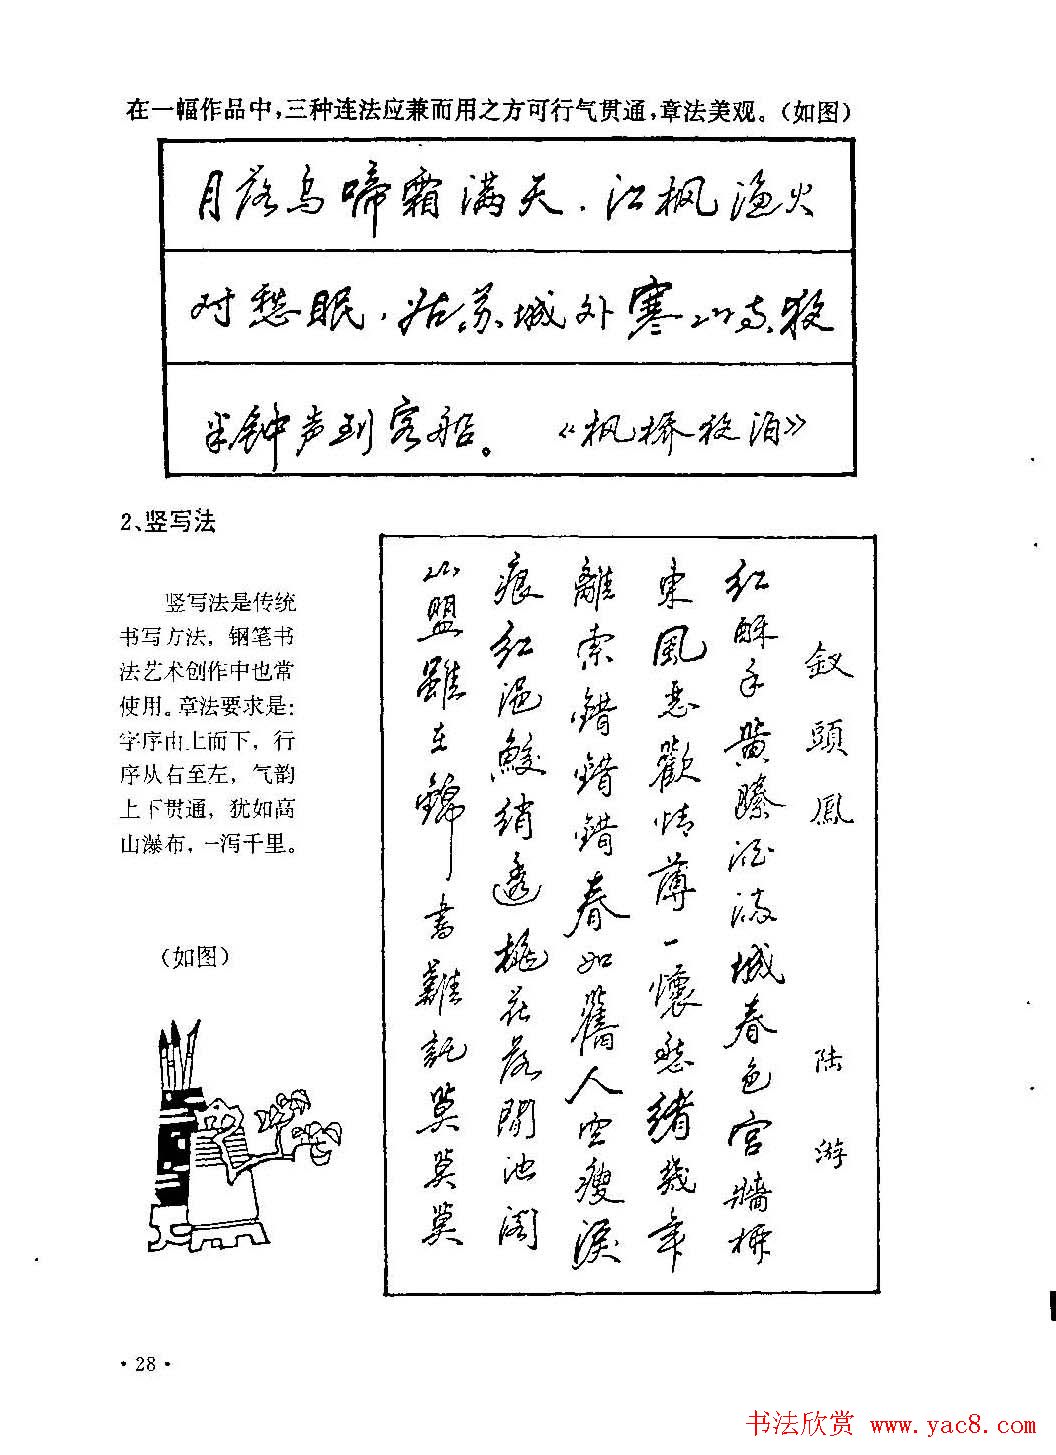 在一幅作品中，三种连法应兼而用之方可行气贯通，章法美观。（如图）
月落乌啼霜满天．江枫渔火
对愁眠，姑苏城外寒山寺，夜
半钟声到客船。《枫桥夜泊》
2、竖写法
竖写法是传统
书写方法，钢笔书
法艺术创作中也常
使用。章法要求是：
字序由上而下，行
序从右至左，气韵
上下贯通，犹如高
山瀑布，一泻千里。
（如图）
釵頭鳳 陆游
红酥手黄縢酒满城春色宫牆柳
東風恶歡情薄一懷愁緒幾年
離索錯錯錯春如舊人空瘦淚
痕红浥鮫綃透桃花落閒池阁
山盟雖在錦書難託莫莫莫
·28·
书法欣赏 www.yac8.com